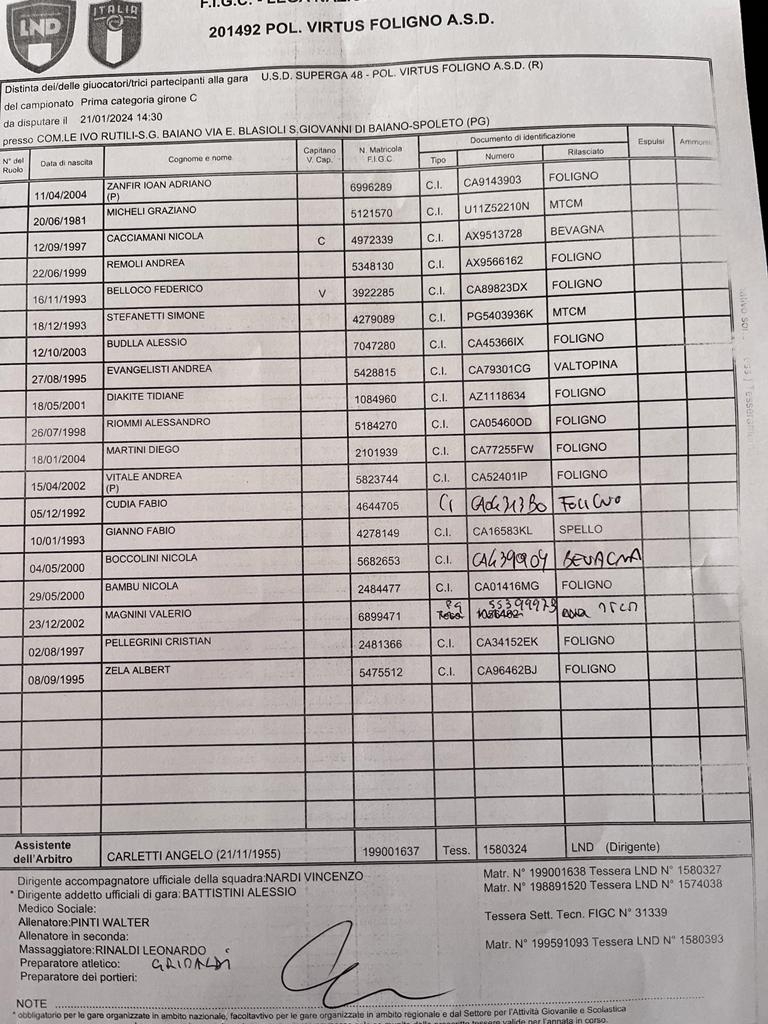 LND
ITALIA
201492 POL. VIRTUS FOLIGNO A.S.D.
Distinta dei/delle giuocatori/trici partecipanti alla gara U.S.D. SUPERGA 48 - POL. VIRTUS FOLIGNO A.S.D. (R)
del campionato Prima categoria girone C
da disputare il 21/01/2024 14:30
presso COM.LE IVO RUTILI-S.G. BAIANO VIA E. BLASIOLI S.GIOVANNI DI BAIANO-SPOLETO (PG)
N° del Ruolo Data di nascita Cognome e nome Capitano V. Cap. N. Matricola F.I.G.C. Documento di identificazione Espulsi
Tipo Numero Rilasciato
11/04/2004 ZANFIR IOAN ADRIANO (P) 6996289 C.I. CA9143903 FOLIGNO
20/06/1981 MICHELI GRAZIANO 5121570 C.I. U11Z52210N MTCM
12/09/1997 CACCIAMANI NICOLA C 4972339 C.I. AX9513728 BEVAGNA
22/06/1999 REMOLI ANDREA 5348130 C.I. AX9566162 FOLIGNO
16/11/1993 BELLOCO FEDERICO V 3922285 C.I. CA89823DX FOLIGNO
18/12/1993 STEFANETTI SIMONE 4279089 C.I. PG5403936K MTCM
12/10/2003 BUDLLA ALESSIO 7047280 C.I. CA45366IX FOLIGNO
27/08/1995 EVANGELISTI ANDREA 5428815 C.I. CA79301CG VALTOPINA
18/05/2001 DIAKITE TIDIANE 1084960 C.I. AZ1118634 FOLIGNO
26/07/1998 RIOMMI ALESSANDRO 5184270 C.I. CA05460OD FOLIGNO
18/01/2004 MARTINI DIEGO 2101939 C.I. CA77255FW FOLIGNO
15/04/2002 VITALE ANDREA (P) 5823744 C.I. CA52401IP FOLIGNO
05/12/1992 CUDIA FABIO 4644705 CI FOLIGNO
10/01/1993 GIANNO FABIO 4278149 C.I. CA16583KL SPELLO
04/05/2000 BOCCOLINI NICOLA 5682653 C.I. BEVAGNA
29/05/2000 BAMBU NICOLA 2484477 C.I. CA01416MG FOLIGNO
23/12/2002 MAGNINI VALERIO 6899471
02/08/1997 PELLEGRINI CRISTIAN 2481366 C.I. CA34152EK FOLIGNO
08/09/1995 ZELA ALBERT 5475512 C.I. CA96462BJ FOLIGNO
Assistente dell'Arbitro CARLETTI ANGELO (21/11/1955) 199001637 Tess. 1580324 LND (Dirigente)
Dirigente accompagnatore ufficiale della squadra:NARDI VINCENZO Matr. N° 199001638 Tessera LND N° 1580327
* Dirigente addetto ufficiali di gara: BATTISTINI ALESSIO Matr. N° 198891520 Tessera LND N° 1574038
Medico Sociale:
Allenatore:PINTI WALTER Tessera Sett. Tecn. FIGC N° 31339
Allenatore in seconda:
Massaggiatore:RINALDI LEONARDO Matr. N° 199591093 Tessera LND N° 1580393
Preparatore atletico:
Preparatore dei portieri:
NOTE
* obbligatorio per le gare organizzate in ambito nazionale, facoltavtivo per le gare organizzate in ambito regionale e dal Settore per l'Attività Giovanile e Scolastica